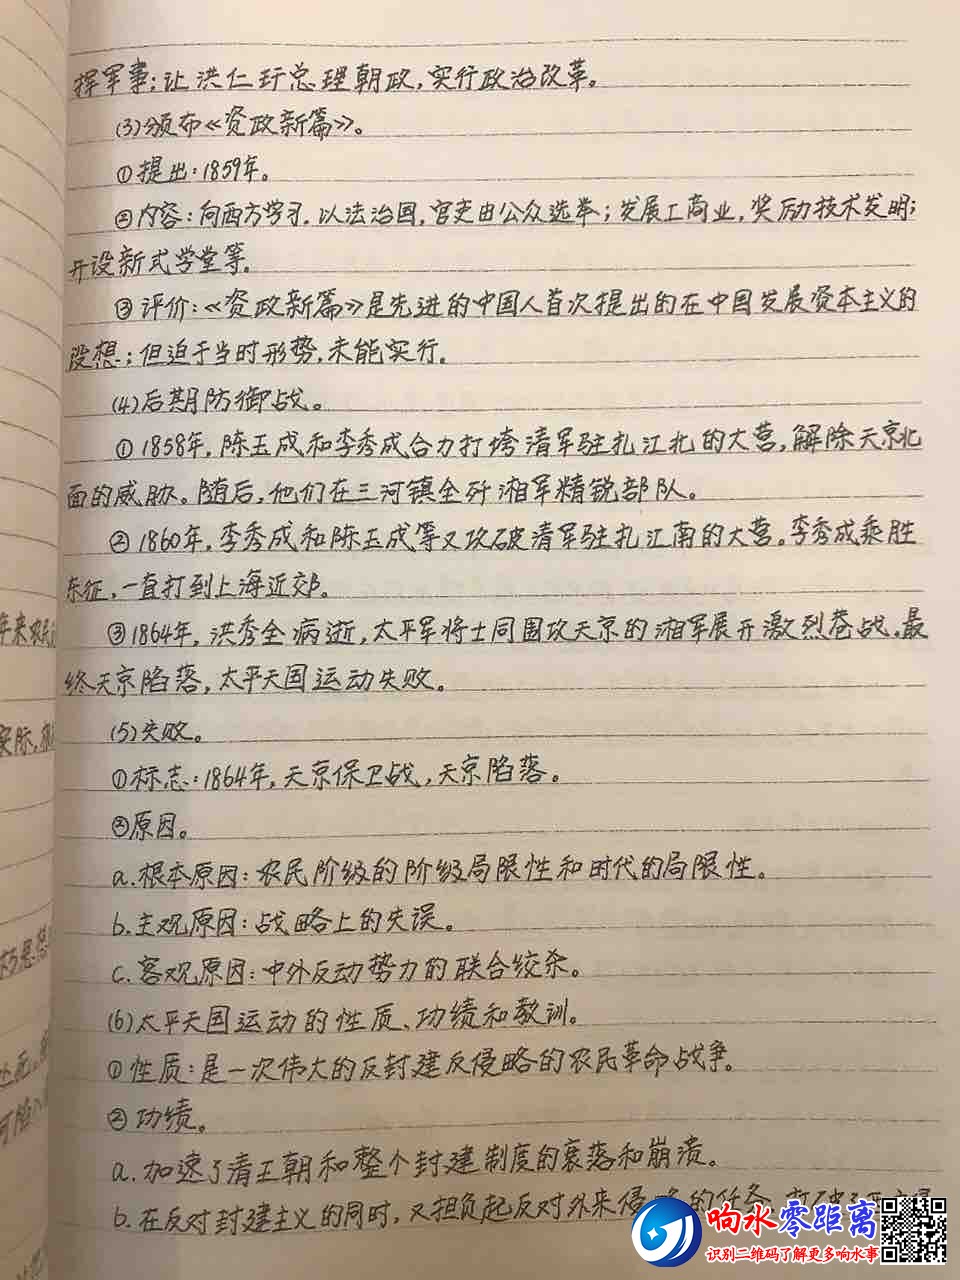 挥军事；让洪仁玕总理朝政，实行政治改革。
(3)颁布《资政新篇》。
①提出：1859年。
②内容：向西方学习，以法治国，官吏由公众选举；发展工商业，奖励技术发明；
开设新式学堂等。
③评价：《资政新篇》是先进的中国人首次提出的在中国发展资本主义的
设想；但迫于当时形势，未能实行。
(4)后期防御战。
①1858年，陈玉成和李秀成合力打垮清军驻扎江北的大营，解除天京北
面的威胁。随后，他们在三河镇全歼湘军精锐部队。
②1860年，李秀成和陈玉成等又攻破清军驻扎江南的大营。李秀成乘胜
东征，一直打到上海近郊。
③1864年，洪秀全病逝，太平军将士同围攻天京的湘军展开激烈巷战。最
终天京陷落，太平天国运动失败。
(5)失败。
①标志：1864年，天京保卫战，天京陷落。
②原因。
a.根本原因：农民阶级的阶级局限性和时代的局限性。
b.主观原因：战略上的失误。
c.客观原因：中外反动势力的联合绞杀。
(6)太平天国运动的性质、功绩和教训。
①性质：是一次伟大的反封建反侵略的农民革命战争。
②功绩。
a.加速了清王朝和整个封建制度的衰落和崩溃。
b.在反对封建主义的同时，又担负起反对外来侵略的任务，打破了
年来农民
实际，
响水零距离
识别二维码了解更多响水事